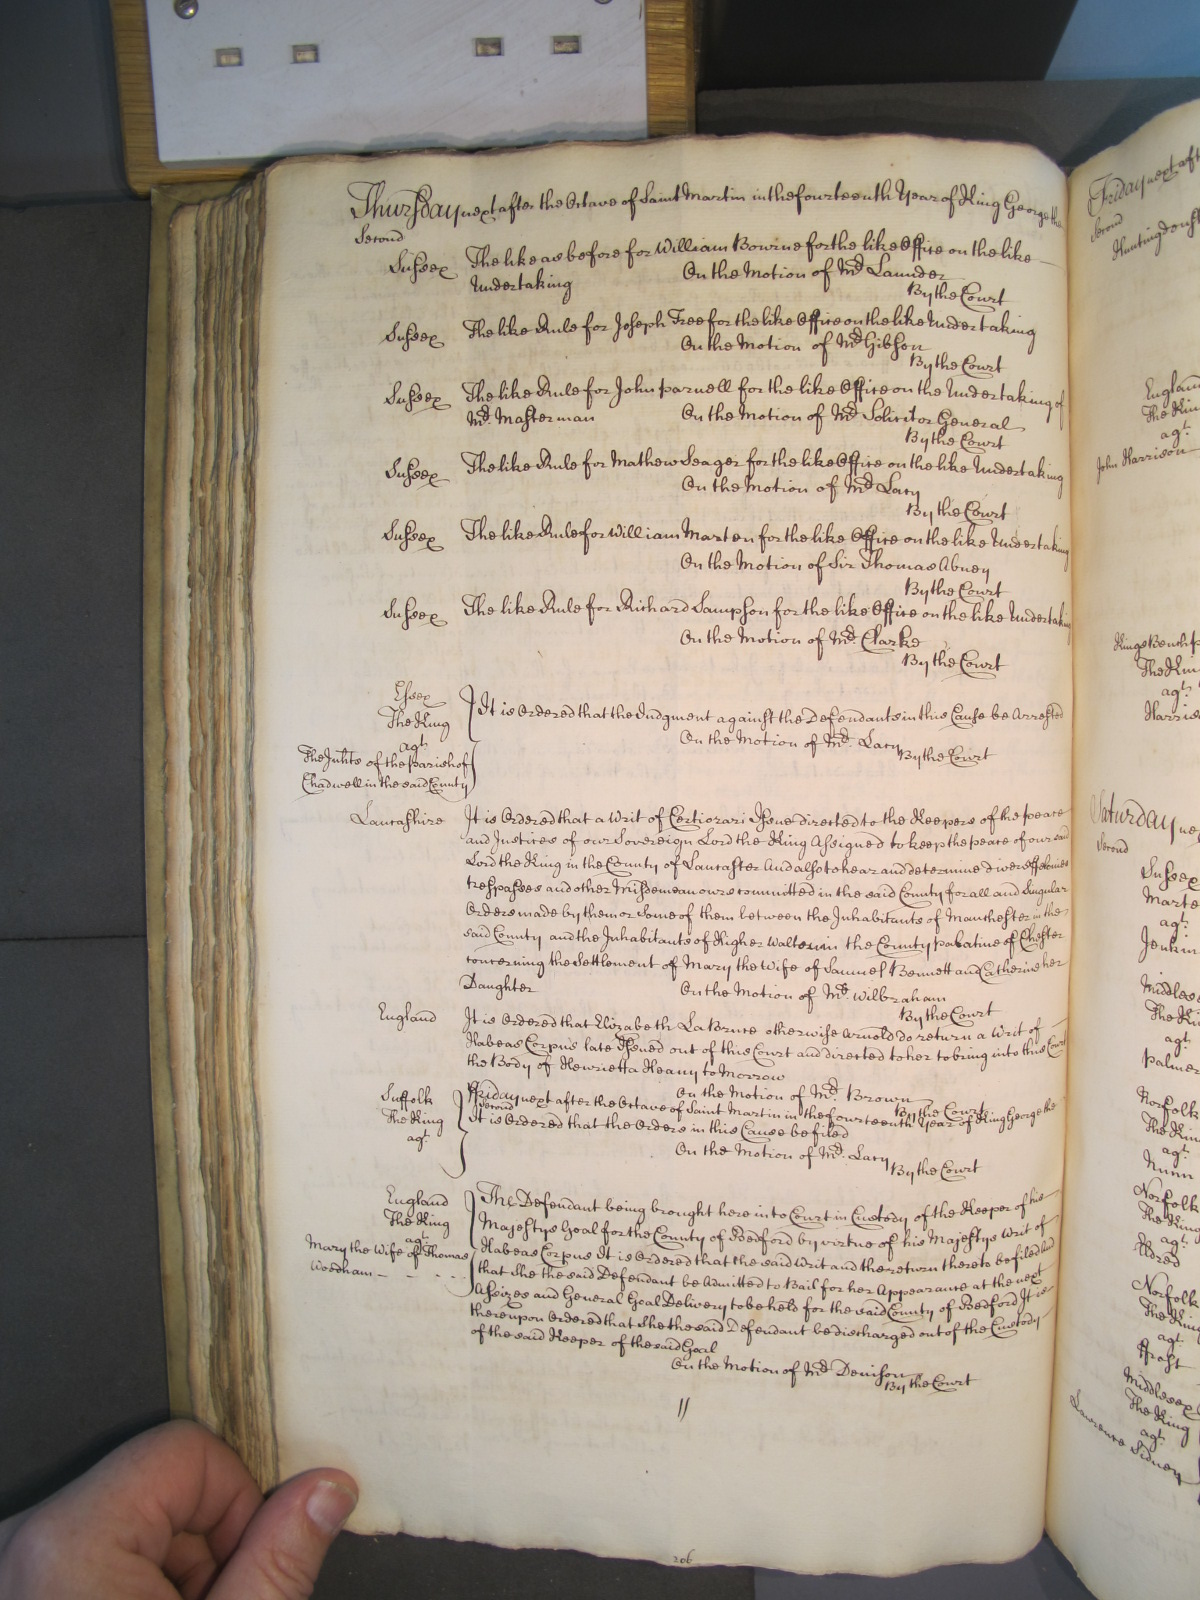 Thursday next after the Octave of Saint Martin in the fourteenth Year of King George the
Second
Sussex The like as before for William Bowrne for the like Office on the like
Undertaking On the Motion of Mr. Launder
By the Court
Sussex The like Rule for Joseph Free for the like Office on the like Undertaking
On the Motion of Mr. Gibson
By the Court
Sussex The like Rule for John parnell for the like Office on the Undertaking of
Mr. Masterman On the Motion of Mr. Solicitor General
By the Court
Sussex The like Rule for Mathew Seager for the like Office on the like Undertaking
On the Motion of Mr. Lacy
By the Court
Sussex The like Rule for William Marten for the like Office on the like Undertaking
On the Motion of Sir Thomas Abney
By the Court
Sussex The like Rule for Richard Sampson for the like Office on the like Undertaking
On the Motion of Mr. Clarke
By the Court
Essex
The King
agt.
The Inhts of the parish of
Chadwell in the said County
It is Ordered that the Judgment against the Defendants in this Cause be Arrested
On the Motion of Mr. Lacy
By the Court
Lancashire It is Ordered that a Writ of Certiorari Issue directed to the Keepers of the peace
and Justices of our Sovereign Lord the King Assigned to keep the peace of our said
Lord the King in the County of Lancaster And also to hear and determine divers ffelonies
trespasses and other Misdemeanours committed in the said County for all and Singular
Orders made by them or Some of them between the Inhabitants of Manchester in the
said County and the Inhabitants of Higher Walton in the County palatine of Chester
concerning the Settlement of Mary the Wife of Samuel Bennett and Catherine her
Daughter On the Motion of Mr. Wilbraham
By the Court
England It is Ordered that Elizabeth La Brune otherwise Arnold do return a Writ of
Habeas Corpus late Issued out of this Court and directed to her to bring into this Court
the Body of Henrietta Heany to Morrow
On the Motion of Mr. Brown
By the Court
ffriday next after the Octave of Saint Martin in the fourteenth Year of King George the
Second
Suffolk
The King
agt.
It is Ordered that the Orders in this Cause be filed
On the Motion of Mr. Lacy
By the Court
England
The King
agt.
Mary the Wife of Thomas
Woodham
The Defendant being brought here into Court in Custody of the Keeper of his
Majestys Goal for the County of Bedford by virtue of his Majestys Writ of
Habeas Corpus It is Ordered that the said Writ and the return thereto be filed And
that She the said Defendant be Admitted to Bail for her Appearance at the next
Assizes and General Goal Delivery to be held for the said County of Bedford It is
thereupon Ordered that She the said Defendant be discharged out of the Custody
of the said Keeper of the said Goal
On the Motion of Mr. Denison
By the Court
206
Friday next aft
Second
England
The Kin
agt.
John Harrison
Kings Bench p
The Kin
agt.
Harris
Saturday ne
Second
Sussex
Marte
agt.
Jenkin
Middles
The Ki
agt.
palmer
Norfolk
The Kin
agt.
Nunn
Norfolk
The King
agt.
Aldred
Norfolk
The King
agt.
ffrost
Middlesex
The King
agt.
Lawrence Sidney